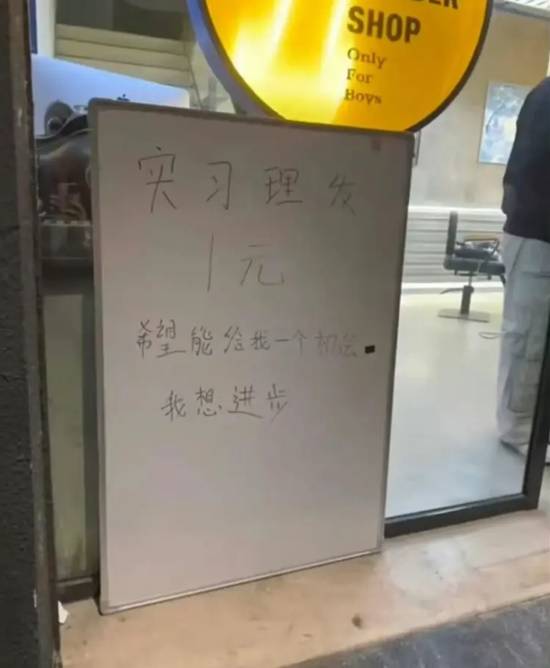 SHOP
Only
For
Boys
实习理发
1元
希望能给我一个机会
我想进步